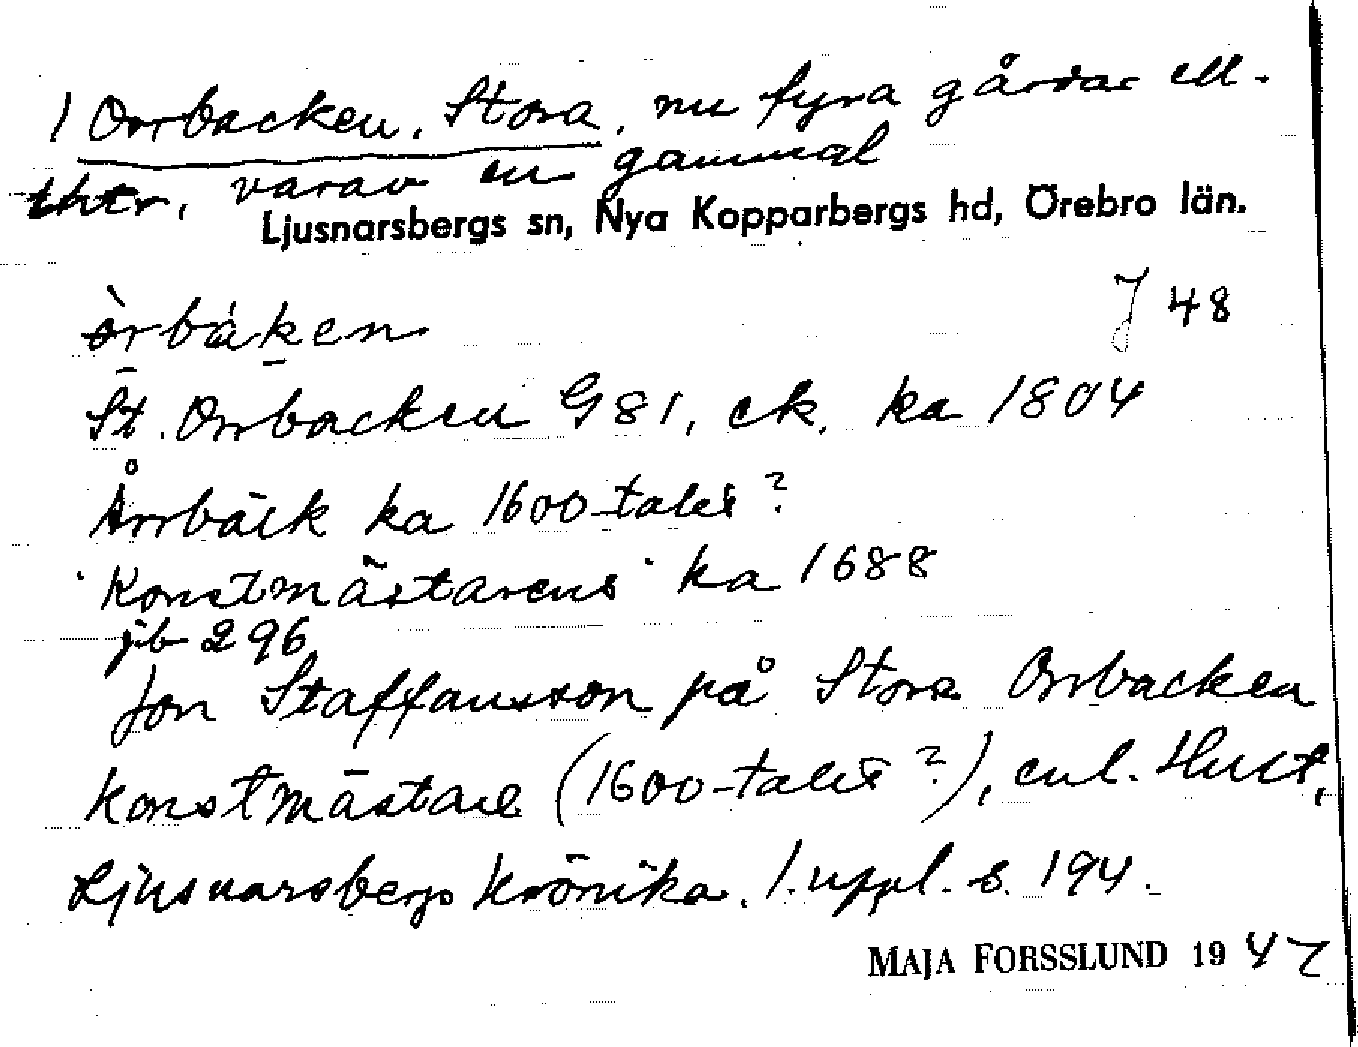 1 Orrbacken, Stora, nu fyra gårdar ell.
thtr, varav en gammal
Ljusnarsbergs sn, Nya Kopparbergs hd, Örebro län.
òrbáken
J 48
St. Orrbacken G 81, ek. ka 1804
Årrbäck ka 1600-talet?
"Konstmästarens" ka 1688
jb 296
Jon Staffansson på Stora Orrbacken
konstmästare (1600-talet?), enl. Hult,
Ljusnarsbergs Krönika. 1. uppl. s. 194.
MAJA FORSSLUND 1947